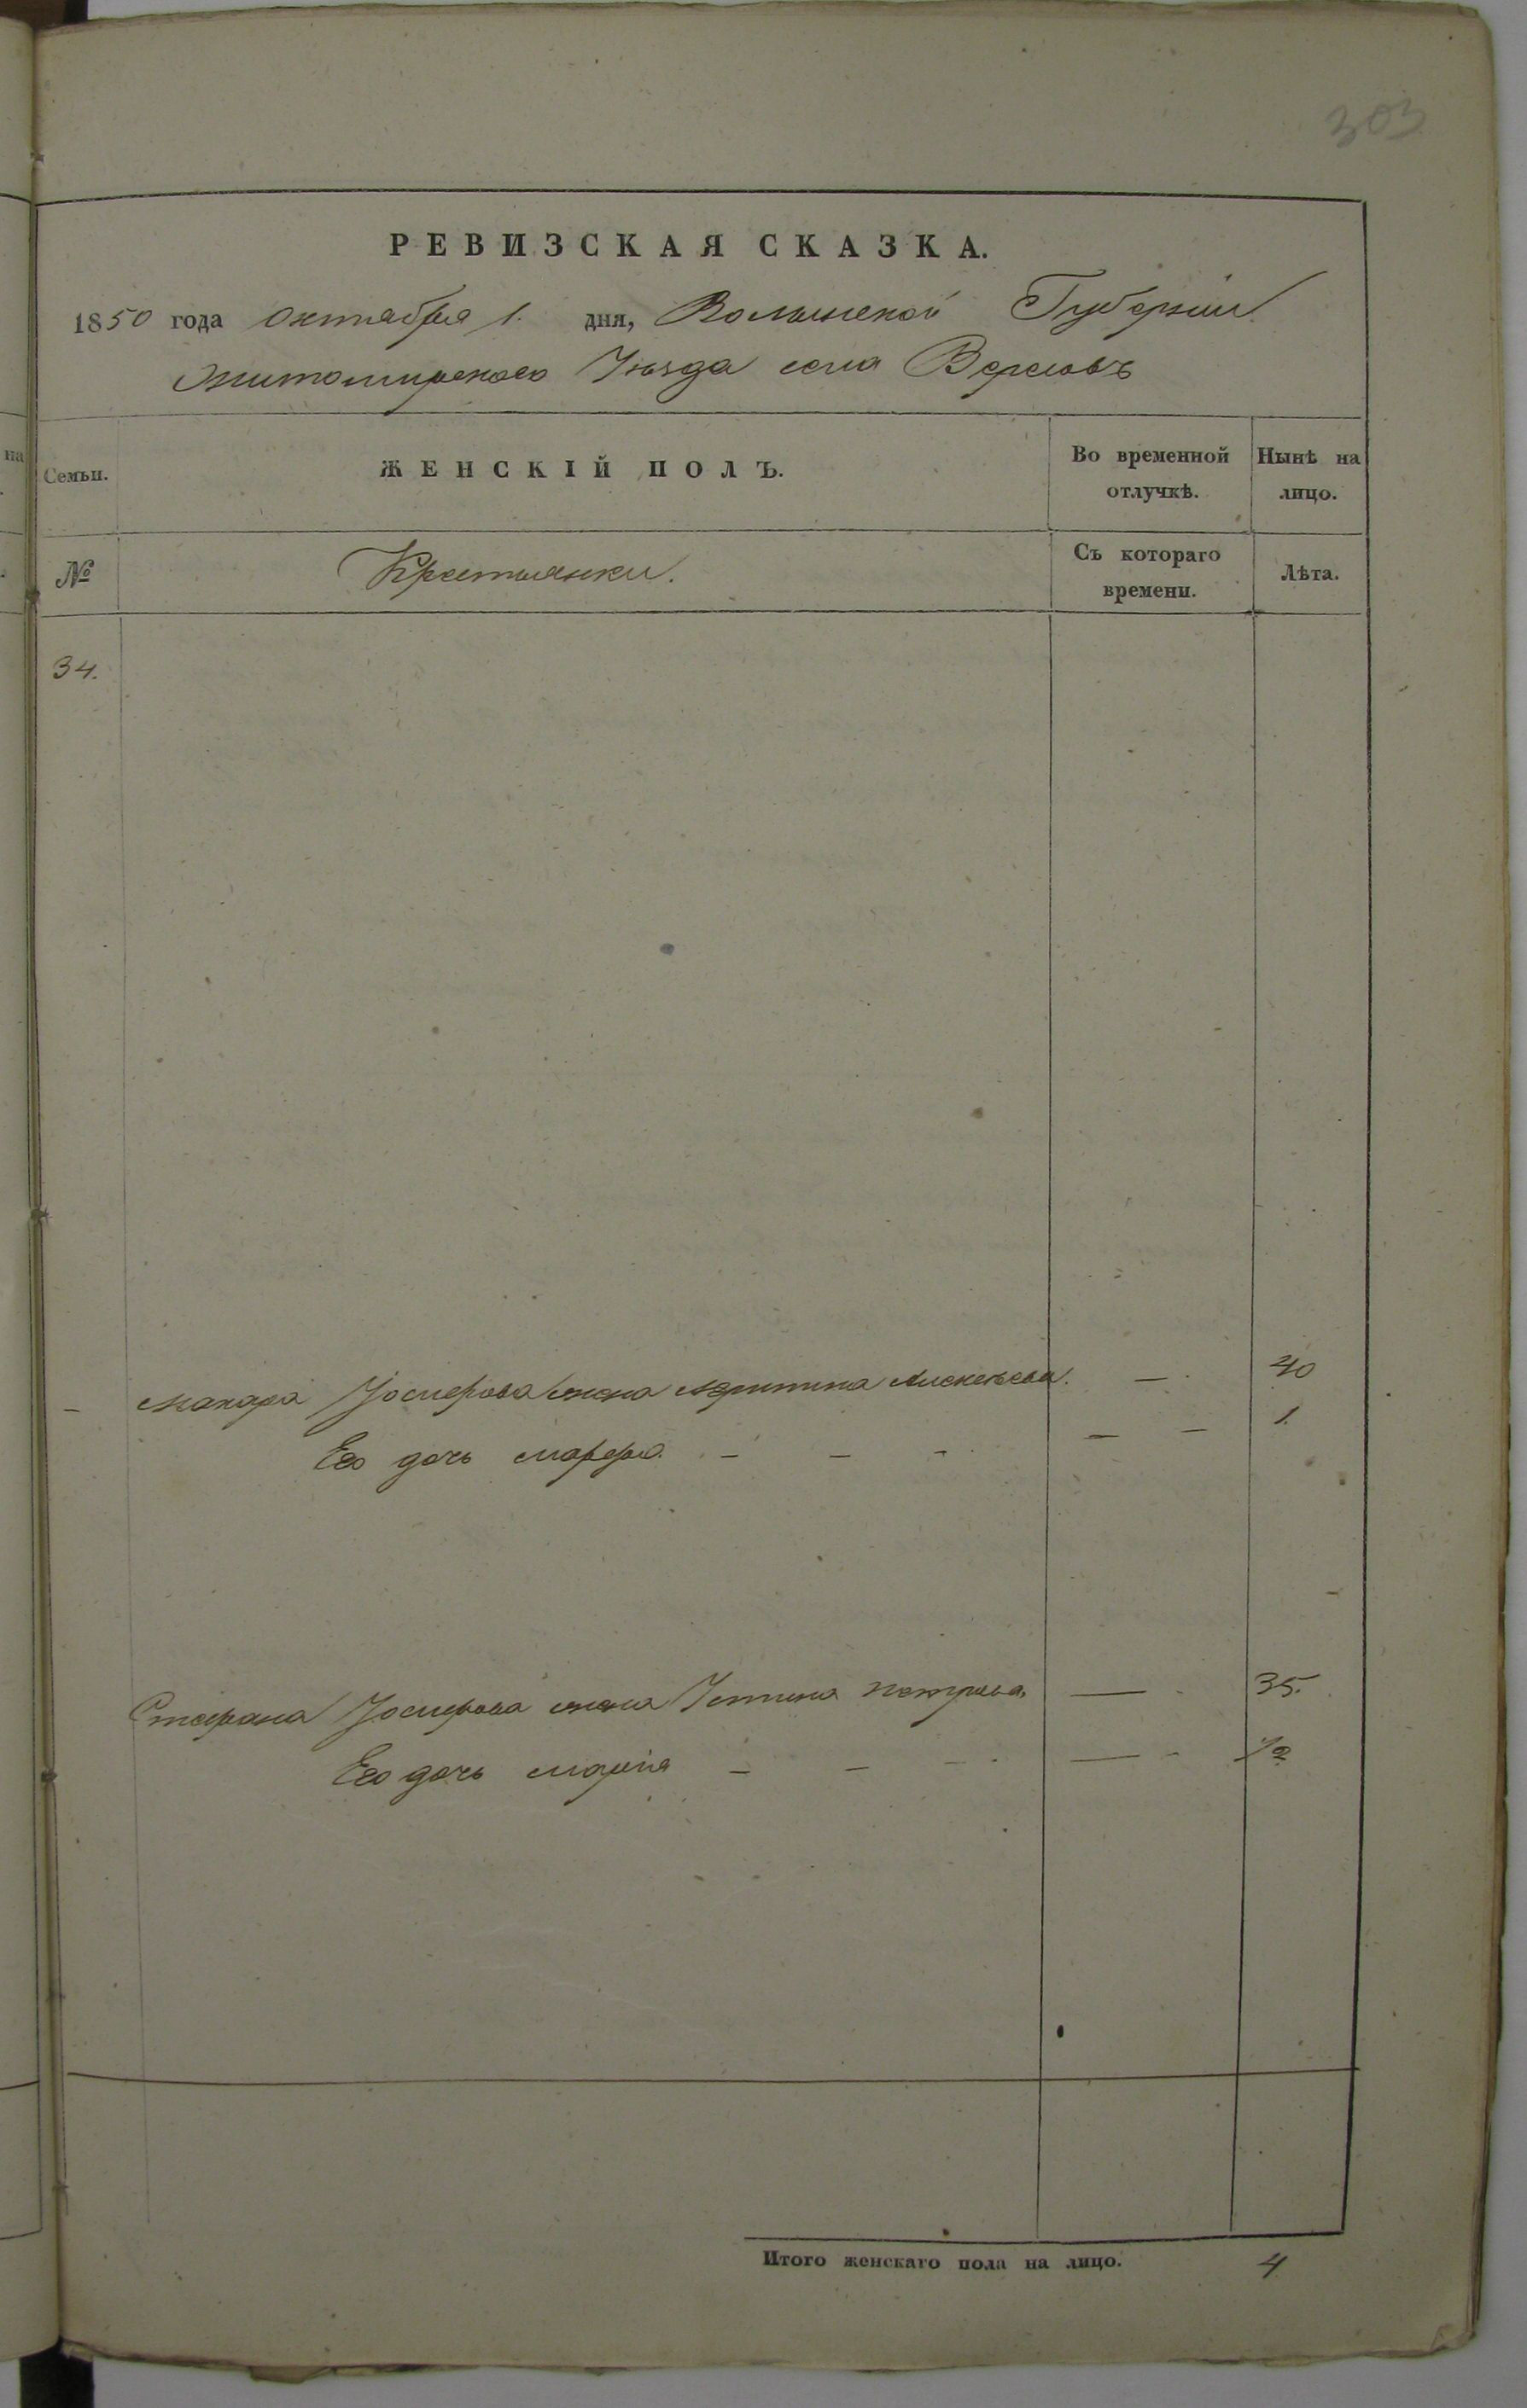 303
РЕВИЗСКАЯ СКАЗКА.
1850 года октября 1. дня, Волынской Губерніи
Житомирского Уѣзда села Вересовъ
Семьи. ЖЕНСКІЙ ПОЛЪ. Во временной отлучкѣ. Нынѣ на лицо.
№ Крестьянки. Съ котораго времени. Лѣта.
34.
– Макара Іосифова жена Христина Алексѣева. – 40
Его дочь Марфа – – – – – 1.
Стефана Іосифова жена Устина Петрова. – 35.
Его дочь Марія – – – – –
Итого женскаго пола на лицо. 4